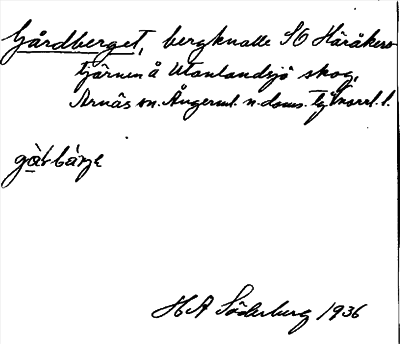 Gårdberget, bergknalle SO Häråkers-
tjärnen å Utanlandsjö skog,
Arnäs sn. Ångerml. n. doms. Tj Norrl. l.
gàḷbárjɛ
H A Söderberg 1936